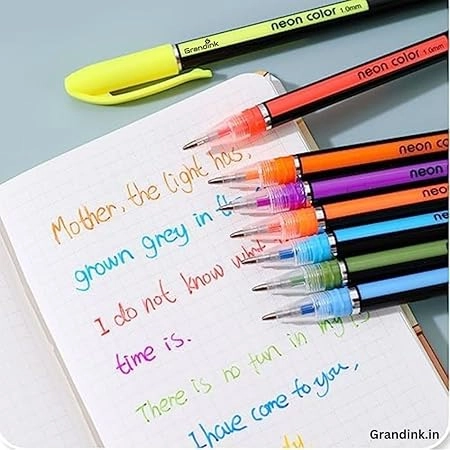 Grandink
neon color 1.0mm
neon color 1.0mm
neon color
neon color
neon color
neon
Mother, the light has,
grown grey in the
I do not know what
time is.
There is no fun in my
I have come to you,
Grandink.in